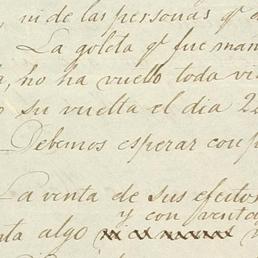 , ni de las personas q̃
La goleta q̃ fue man
, no ha vuelto toda vi
su vuelta el dia 2
Debemos esperar con p
La venta de sus efectos
y con venta
ta algo